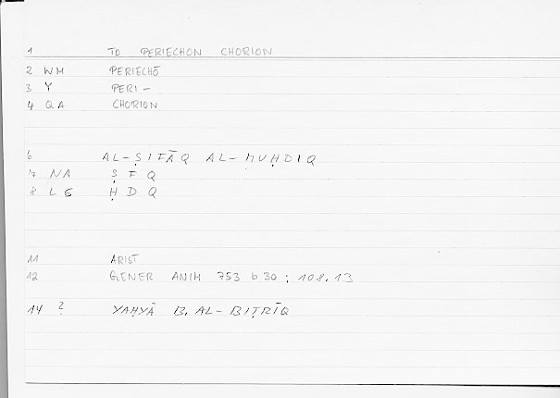 1 TO PERIECHON CHORION
2 WM PERIECHŌ
3 Y PERI-
4 QA CHORION
6 AL-ṢIFĀQ AL-MUḤDIQ
7 NA Ṣ F Q
8 LG Ḥ D Q
11 ARIST
12 GENER ANIM 753 b 30 ; 108.13
14 ? YAḤYĀ B. AL-BIṬRĪQ